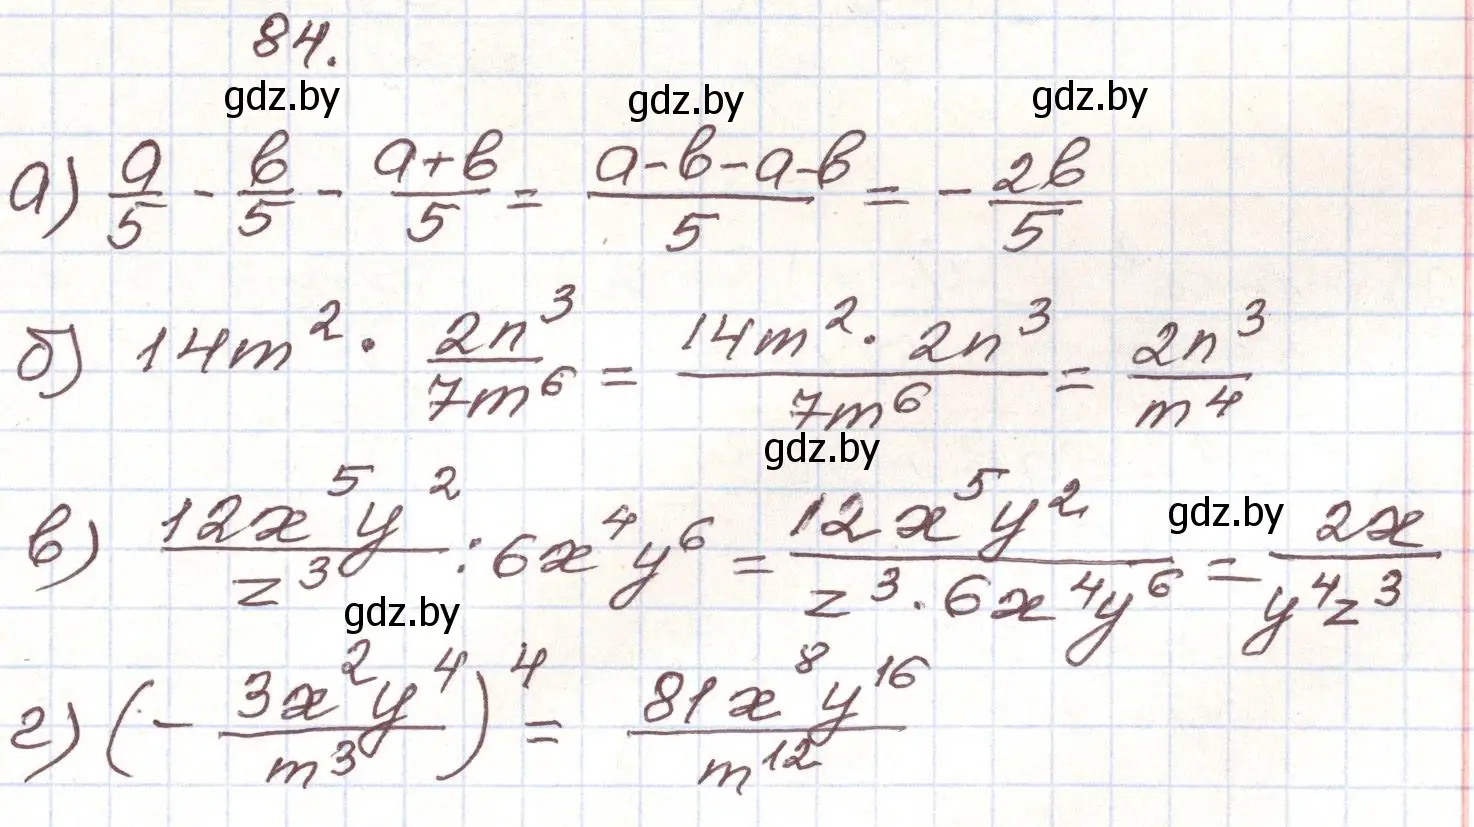 84.
gdz.by gdz.by gdz.by
а) a/5 - b/5 - (a+b)/5 = (a-b-a-b)/5 = - 2b/5
б) 14m² · 2n³/7m⁶ = 14m² · 2n³/7m⁶ = 2n³/m⁴
gdz.by
в) 12x⁵y²/z³ : 6x⁴y⁶ = 12x⁵y²/z³·6x⁴y⁶ = 2x/y⁴z³
gdz.by
gdz.by
г) (- 3x²y⁴/m³)⁴ = 81x⁸y¹⁶/m¹²